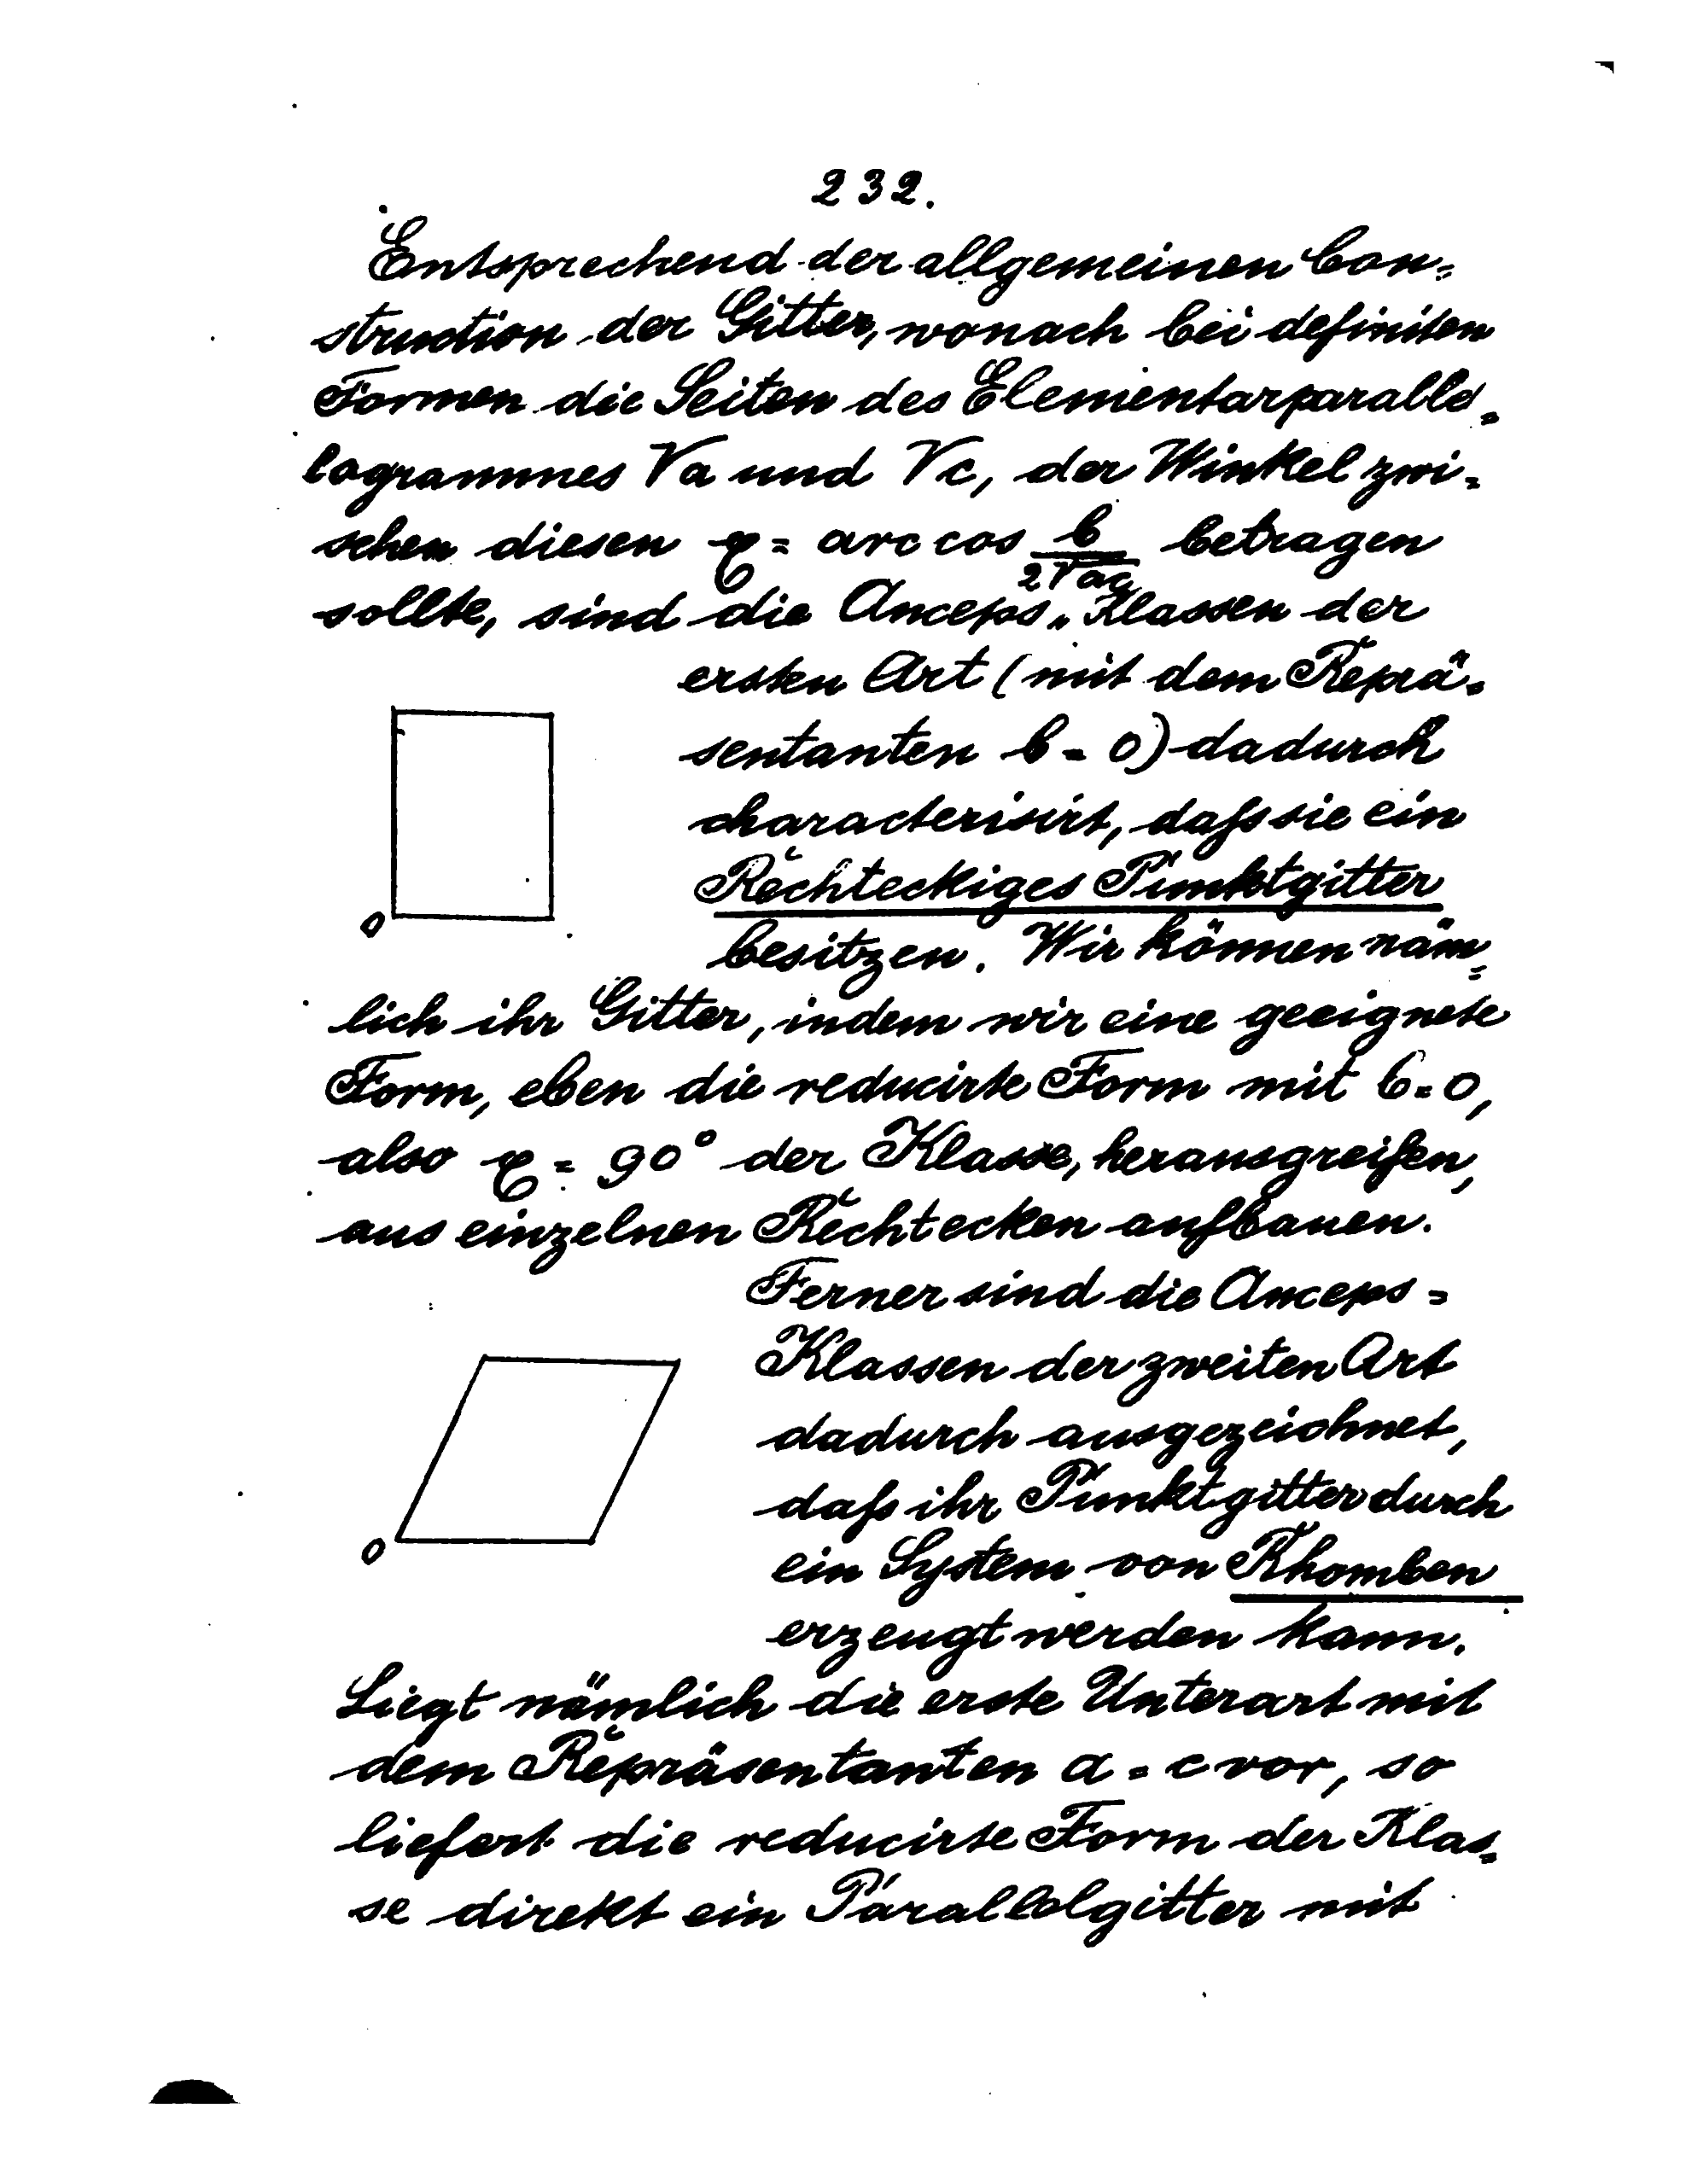 232.
Entsprechend der allgemeinen Con=
struction der Gitter, wonach bei definiten
Formen die Seiten des Elementarparalle=
logrammes √a und √c, der Winkel zwi=
schen diesen φ = arc cos b/2√ac betragen
sollte, sind die Anceps=Klassen der
ersten Art (mit dem Reprä=
sentanten b = 0) dadurch
characterisirt, dafs sie ein
Rechteckiges Punktgitter
besitzen. Wir können näm=
lich ihr Gitter, indem wir eine geeignete
Form, eben die reducirte Form mit b=0,
also φ = 90° der Klasse, herausgreifen,
aus einzelnen Rechtecken aufbauen.
Ferner sind die Anceps=
Klassen der zweiten Art
dadurch ausgezeichnet,
dafs ihr Punktgitter durch
ein System von Rhomben
erzeugt werden kann.
Liegt nämlich die erste Unterart mit
dem Repräsentanten a = c vor, so
liefert die reducirte Form der Klas=
se direkt ein Parallelgitter mit
0
0